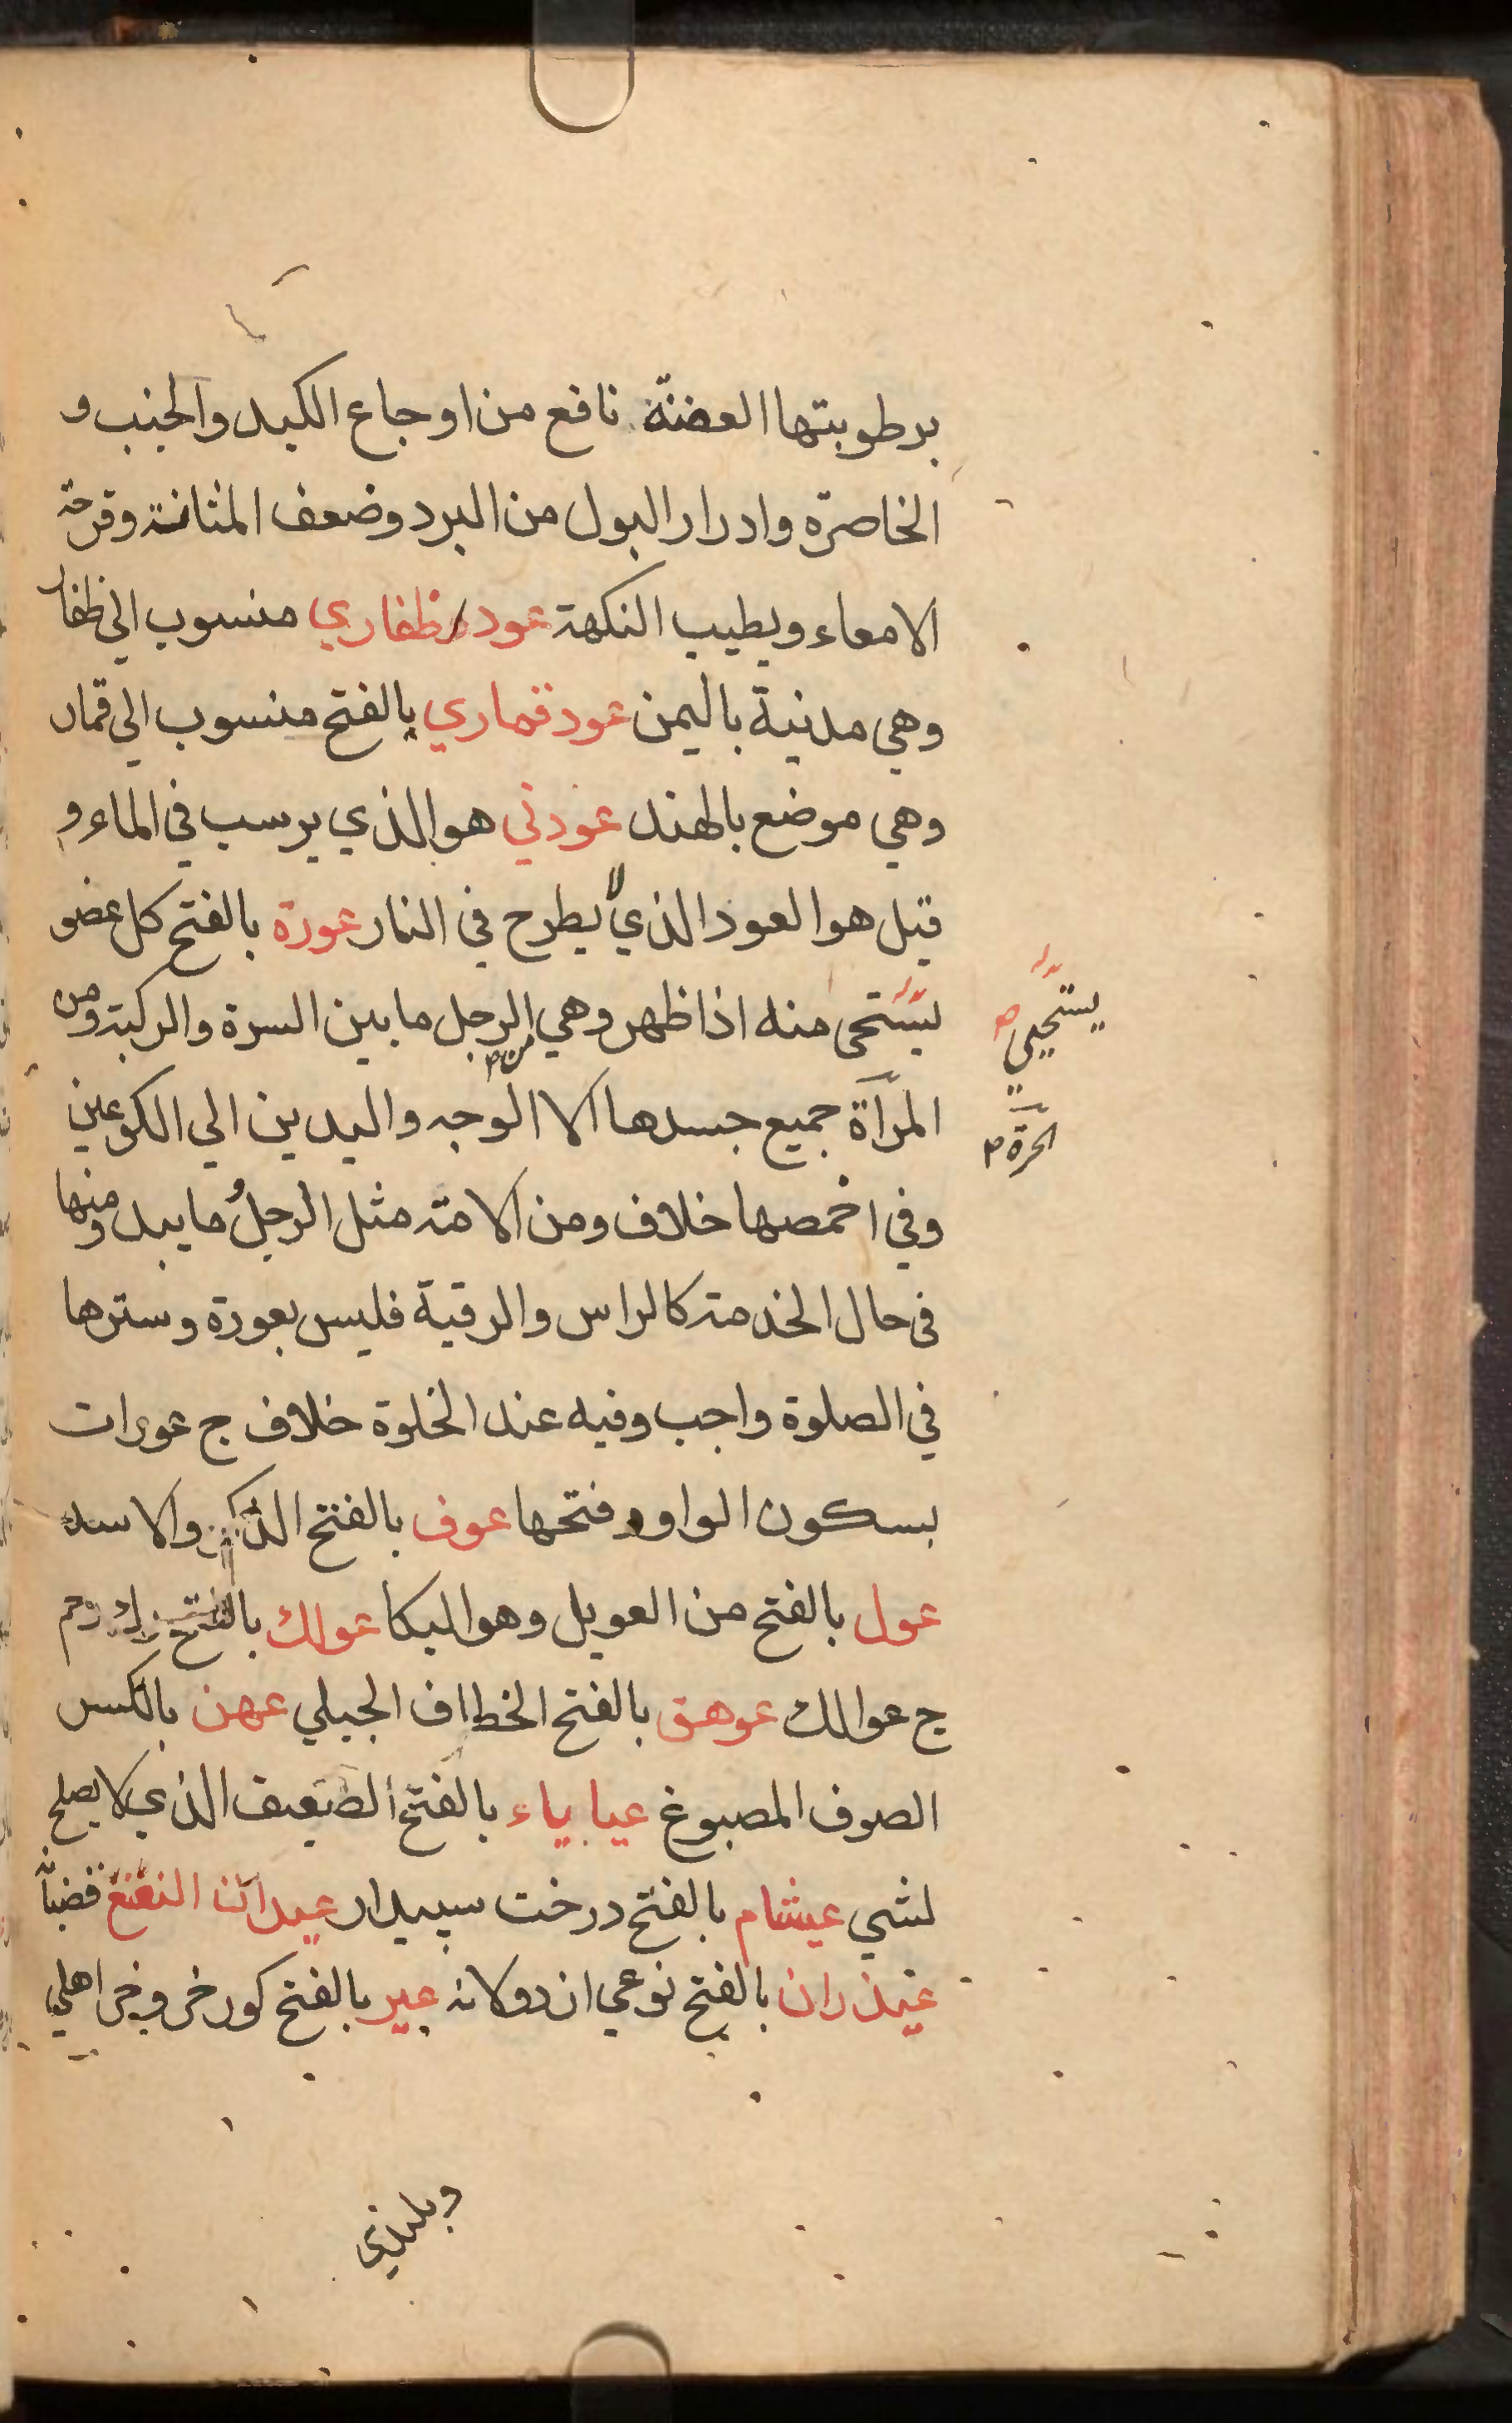 برطوبتها العضنة نافع من اوجاع الكبد والجنب و
الخاصرة وادرار البول من البرد وضعف المثانة وقرحة
الامعاء ويطيب النكهة عود ظفاري منسوب الى ظفار
وهي مدنية باليمن عود قماري بالفتح منسوب الى قمار
وهي موضع بالهند عودني هو الذي يرسب في الماء و
قيل هو العود الذي لا يطرح في النار عورة بالفتح كل عضو
يستحى منه اذا ظهر وهي من الرجل ما بين السرة والركبة ومن
يستحيى
المرآة جميع جسدها الا الوجه واليدين الي الكوعين
الحرة
وفي اخمصها خلاف ومن الامة مثل الرجل ما يبدو منها
في حال الخدمة كالراس والرقبة فليس بعورة وسترها
في الصلوة واجب وفيه عند الخلوة خلاف ج عورات
بسكون الواو وفتحها عوف بالفتح الذكر والاسد
عول بالفتح من العويل وهو البكا عولك بالفتح
ج عوالك عوهق بالفتح الخطاف الجبلي عهن بالكسر
الصوف المصبوغ عياياء بالفتح الضعيف الذي لا يصلح
لشي عيشام بالفتح درخت سپيدار عيدان النعنع قضبانه
عيذران بالفتح نوعي از دولانه عير بالفتح كور خر وخر اهلي
وبلندي